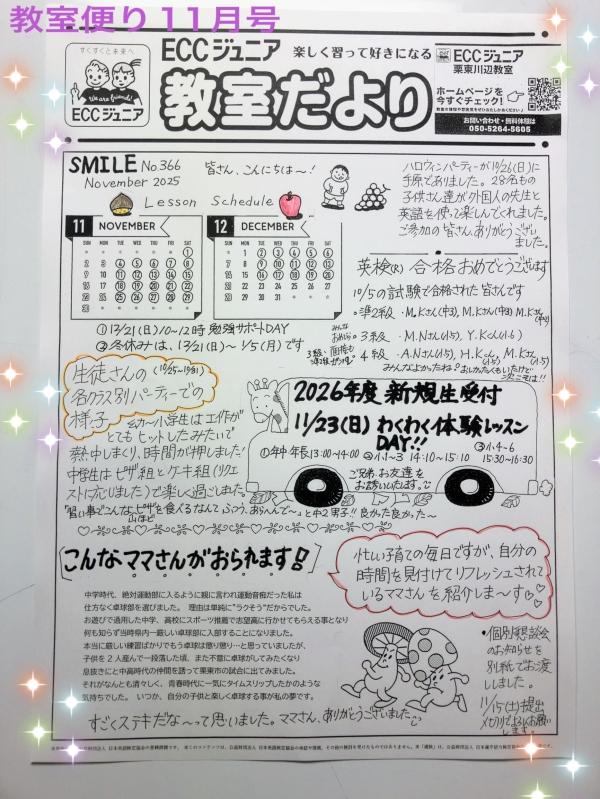 教室便り11月号
すくすくと未来へ
We are friends!
ECCジュニア
ECCジュニア 楽しく習って好きになる
教室だより
ECCジュニア
栗東川辺教室
ホームページを
今すぐチェック!
お問い合わせ・無料体験は
050-5264-5605
SMILE No.366
November 2025
皆さん、こんにちは～!
Lesson Schedule
11 NOVEMBER
SUN MON TUE WED THU FRI SAT
1
2 3 4 5 6 7 8
9 10 11 12 13 14 15
16 17 18 19 20 21 22
23 24 25 26 27 28 29
30
12 DECEMBER
SUN MON TUE WED THU FRI SAT
1 2 3 4 5 6
7 8 9 10 11 12 13
14 15 16 17 18 19 20
21 22 23 24 25 26 27
28 29 30 31
①12/21(日)10~12時 勉強サポートDAY
②冬休みは、12/21(日)~1/5(月)です
ハロウィンパーティーが10/26(日)に
手原でありました。28名もの
子供さん達が外国人の先生と
英語を使って楽しんでくれました。
ご参加の皆さん、ありがとうござい
ました。
英検(R) 合格おめでとうございます
10/5の試験で合格された皆さんです
・準2級・M.Kさん(中3), M.Kさん(中3) M.Kさん(中2)
3級・M.Nさん(小5), Y.Kくん(小6)
4級・A.Nさん(小5), H.Kくん, M.Kさん(小5)
生徒さんの(10/25~10/31)
各クラス別パーティーでの
様子
幼力~小学生は工作が
とてもヒットしたみたいで
熱中しまくり、時間が押しました!
中学生はピザ組とケーキ組(リクエ
ストに応じました)で楽しく過ごしました。
2026年度 新規生受付
11/23(日) わくわく体験レッスン
DAY!!
①年中 年長 13:00~14:00
②小1~3 14:10~15:10
③小4~6
15:30~16:30
ご兄弟、お友達を
お誘いいたします。
と中2男子!!良かった良かった~
こんなママさんがおられます!
忙しい子育ての毎日ですが、自分の
時間を見付けてリフレッシュされて
いるママさんを紹介しま~す♡
中学時代、絶対運動部に入るように親に言われ運動音痴だった私は
仕方なく卓球部を選びました。 理由は単純に"ラクそう"だからでした。
お遊びで過ごした中学、高校にスポーツ推薦で志望高に行かせてもらえる事となり
何も知らず当時県内一厳しい卓球部に入部することになりました。
本当に厳しい練習ばかりでもう卓球は懲り懲り…と思っていましたが、
子供を2人産んで一段落した頃、また不意に卓球がしてみたくなり
息抜きにと中高時代の仲間を誘って栗東市の試合に出てみました。
それがなんとも清々しく、青春時代に一気にタイムスリップしたかのような
気持ちでした。 いつか、自分の子供と楽しく卓球する事が私の夢です。
すごくステキだな~って思いました。ママさん、ありがとうございました
・個別懇談会
のお知らせを
別紙でお渡
ししました。
11/15(土)提出
〆切りでよろしくお願い
します。